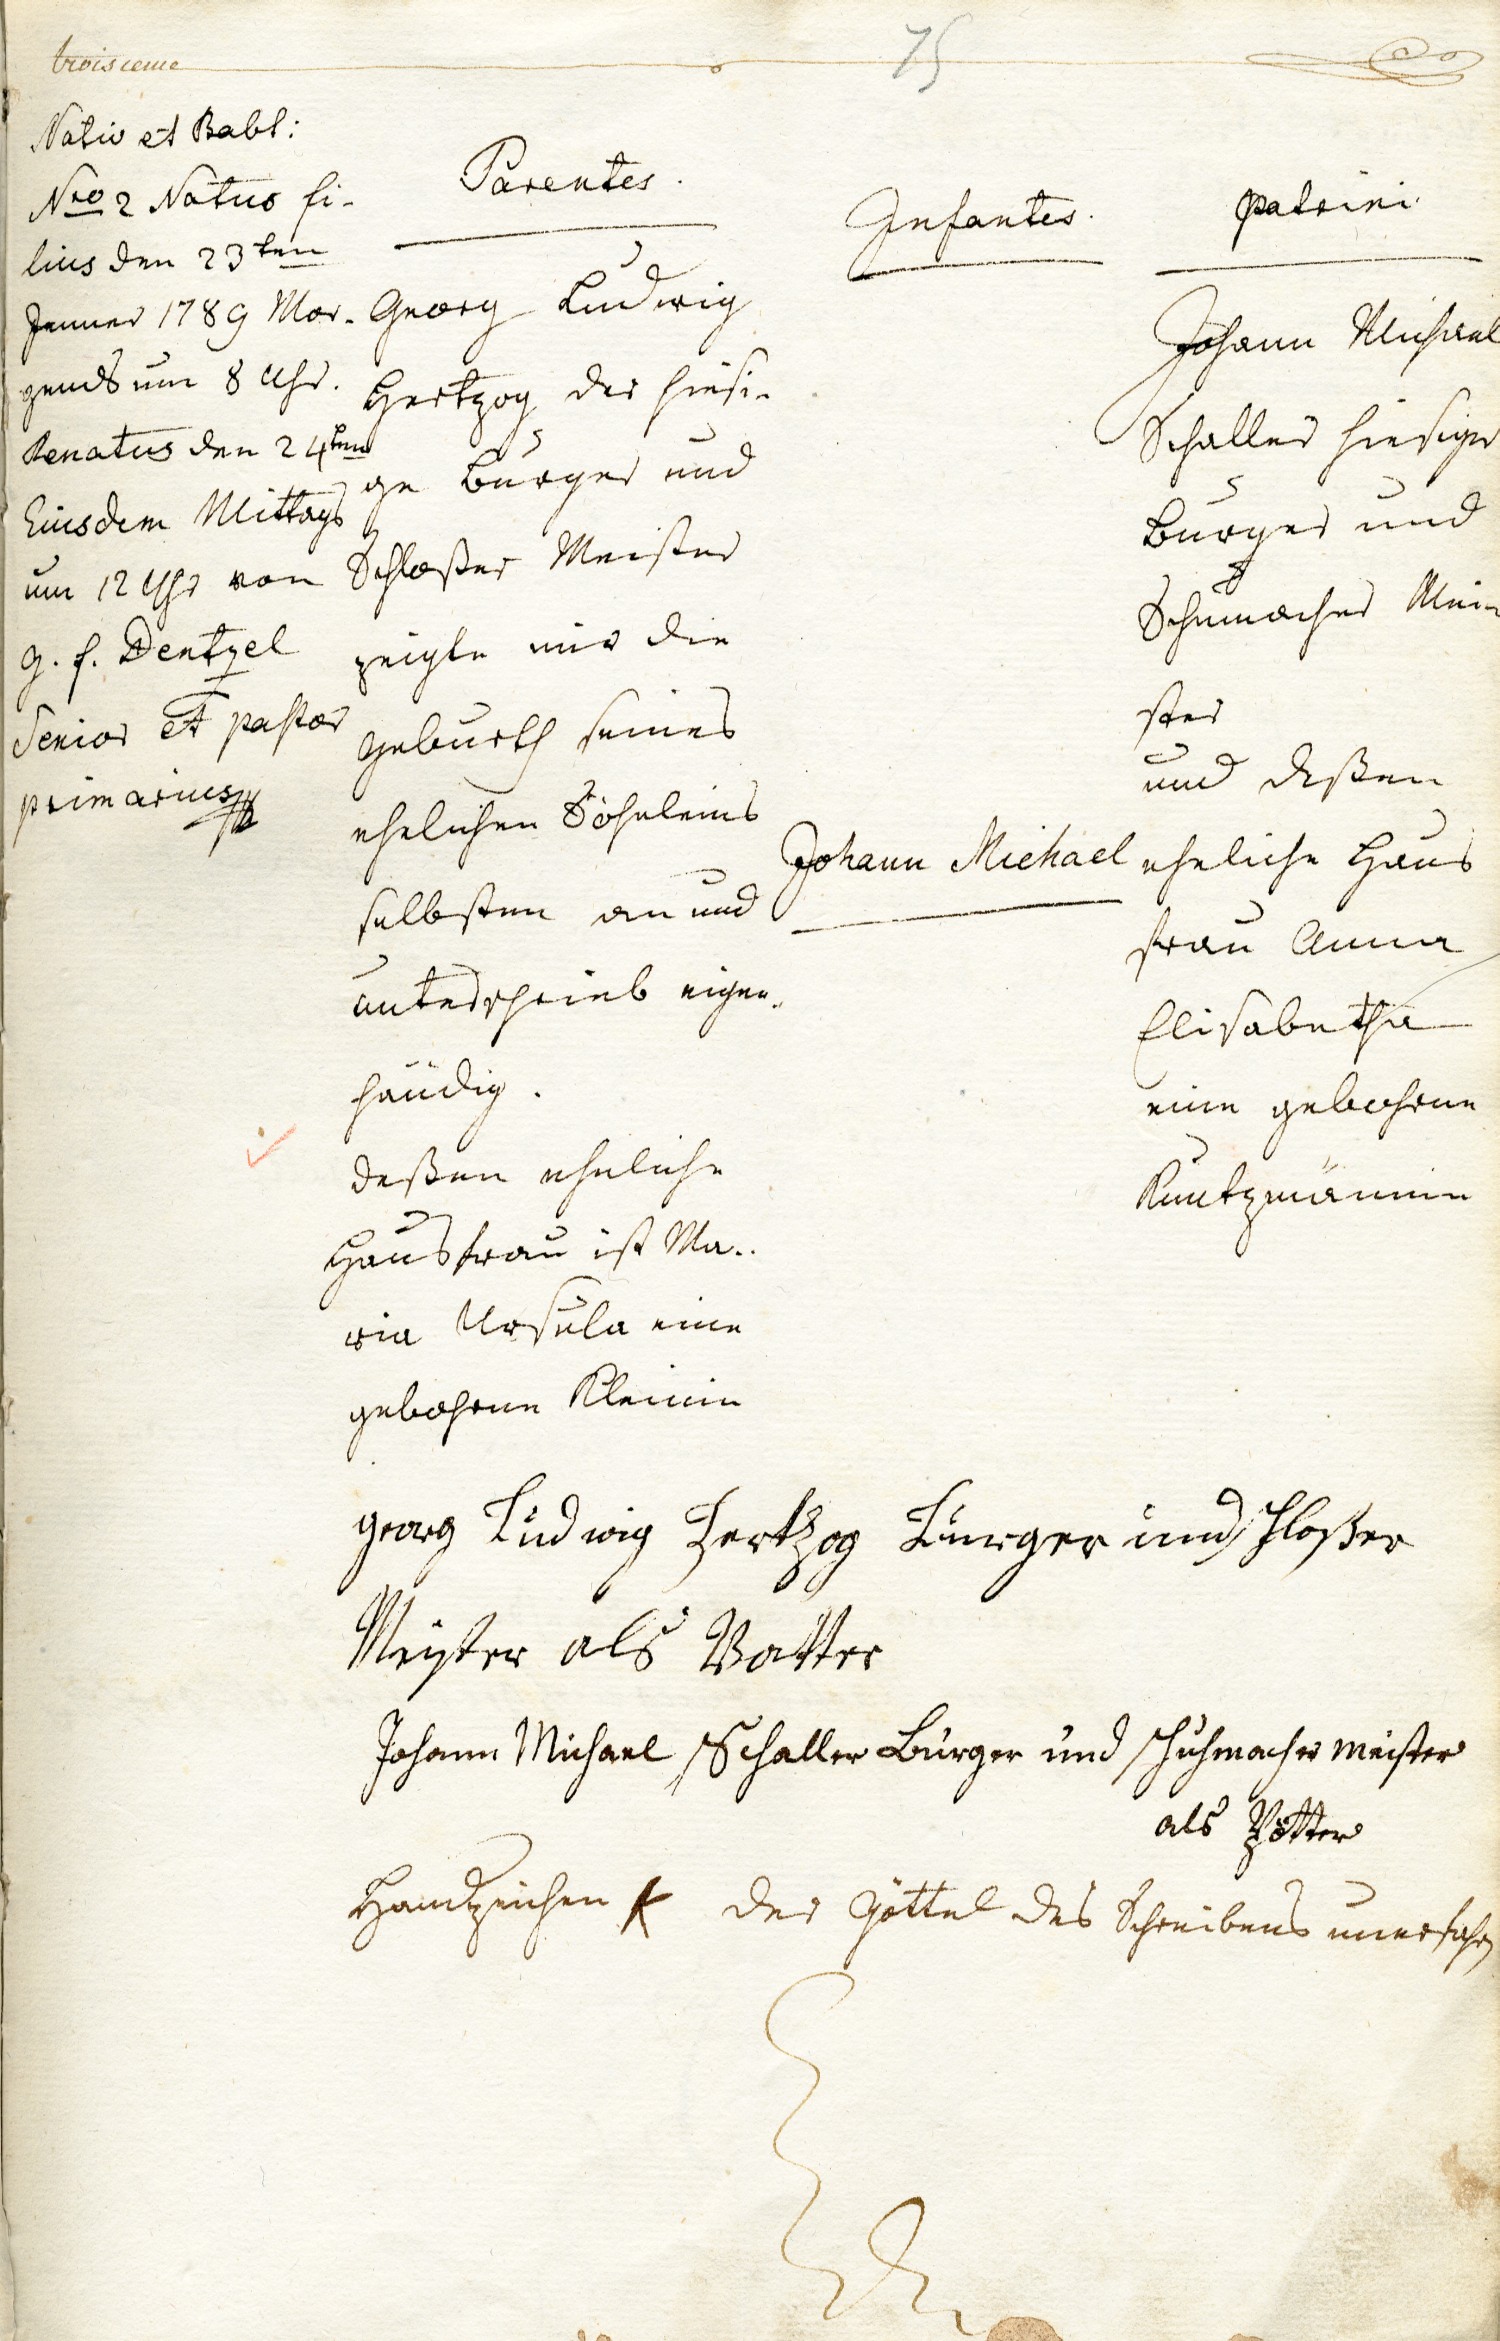 troisieme
75
Nativ et Babt:
Nro 2 Natus fi-
lius den 23ten
Jenner 1789 Mor-
gends um 8 Uhr.
Renatus den 24ten
Eiusdem Mittags
um 12 Uhr von
G. f. Dentzel
Senior et pastor
primarius
Parentes.
Georg Ludwig
Hertzog der hiesi-
ge Burger und
Schloßer Meister
zeigte mir die
Geburth seines
ehelichen Söhnleins
selbsten an und
unterschrieb eigen-
händig.
deßen eheliche
Hausfrau ist Ma-
ria Ursula eine
gebohrne Kleinin
Infantes.
Johann Michael
Patrini.
Johann Michael
Schaller hiesiger
Burger und
Schumacher Mei-
ster
und deßen
eheliche Haus
frau Anna
Elisabetha
eine gebohrne
Kuntzmännin
Georg Ludwig Hertzog Bürger und schloßer
Meister als Vatter
Johann Michael Schaller Bürger und schuhmacher meister
als Pötter
Handzeichen der Göttel des Schreibens unerfahr